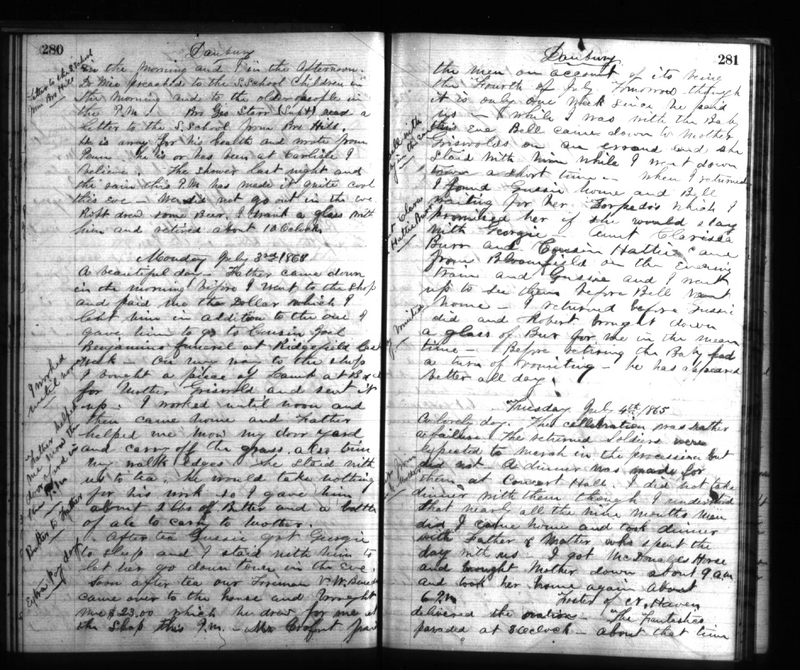 280
Danbury
in the morning and 1 in the Afternoon.
preached to the S.School Children in
the morning and to the older people in
the P.M. Bro Geo Starr (Supt) read a
letter to the S.School from Bro Hill.
He is away for his health and wrote from
Penn. He is or has been at Carlisle I
believe. The shower last night and
the rain this P.M. has made it quite cool
this eve - We did not go out in the eve
Robt drew some Beer. I drank a glass with
him and retired about 10 Oclock
Monday July 3rd 1865
A beautiful day - Father came down
in the morning before I went to the shop
and paid me the Dollar which I
lent him in addition to the one I
gave him to go to Cousin Joel
Benjamins funeral at Ridgefield last
week - On my way to the shop
I bought a piece of Lamb at
for Mother Griswold and sent it
up. I worked until noon and
then came home and Father
helped me mow my door yard
and carry off the grass also trim
my walk edges. He staid with
us to tea. He would take nothing
for his work so I gave him
about 2 lbs of Butter and a bottle
of ale to carry to Mother.
After tea Gussie got Georgie
to sleep and I staid with him to
let her go down town in the Eve.
Soon after tea our Foreman V.W.
came over to the house and brought
me $23.00 which he drew for me at
the Shop this P.M. - Mr Crofut paid
letter to the S School
from Bro Hill
I worked
until noon
Father helped
me mow the
door yard in
this P.M.
Butter to Father
Extra Pay day
281
Danbury
the men on account of its being
the Fourth of July tomorrow though
it is only one week since he paid
us - While I was with the Baby
this Eve Bell came down to Mother
Griswolds on an errand and she
staid with him while I went down
town a short time - When I returned
I found Gussie home and Bell
waiting for her Torpedos which I
promised her if she would stay
with Georgie - Aunt Clarissa
Burr and Cousin Hattie came
from Bloomfield on the evening
train and Gussie and I went
up to see them before Bell went
home - I returned before Gussie
did and Robert brought down
a glass of Beer for me in the mean
time - Before retiring the Baby had
a turn of vomiting - he has appeared
better all day.
Tuesday July 4th 1865
A lovely day. The celebration was rather
a failure. The returned Soldiers were
expected to march in the procession but
did not. A dinner was made for
them at Concert Hall. I did not take
dinner with them though I understood
that nearly all the nine months men
did I came home and took dinner
with Father & Mother who spent the
day with us - I got McDonalds Horse
and brought Mother down about 9 am
and took her home again about
6 P.M. Foster of N. Haven
delivered the oration - The Fantastics
paraded at 5 Oclock - about that time
Aunt Clara
& Hattie Burr